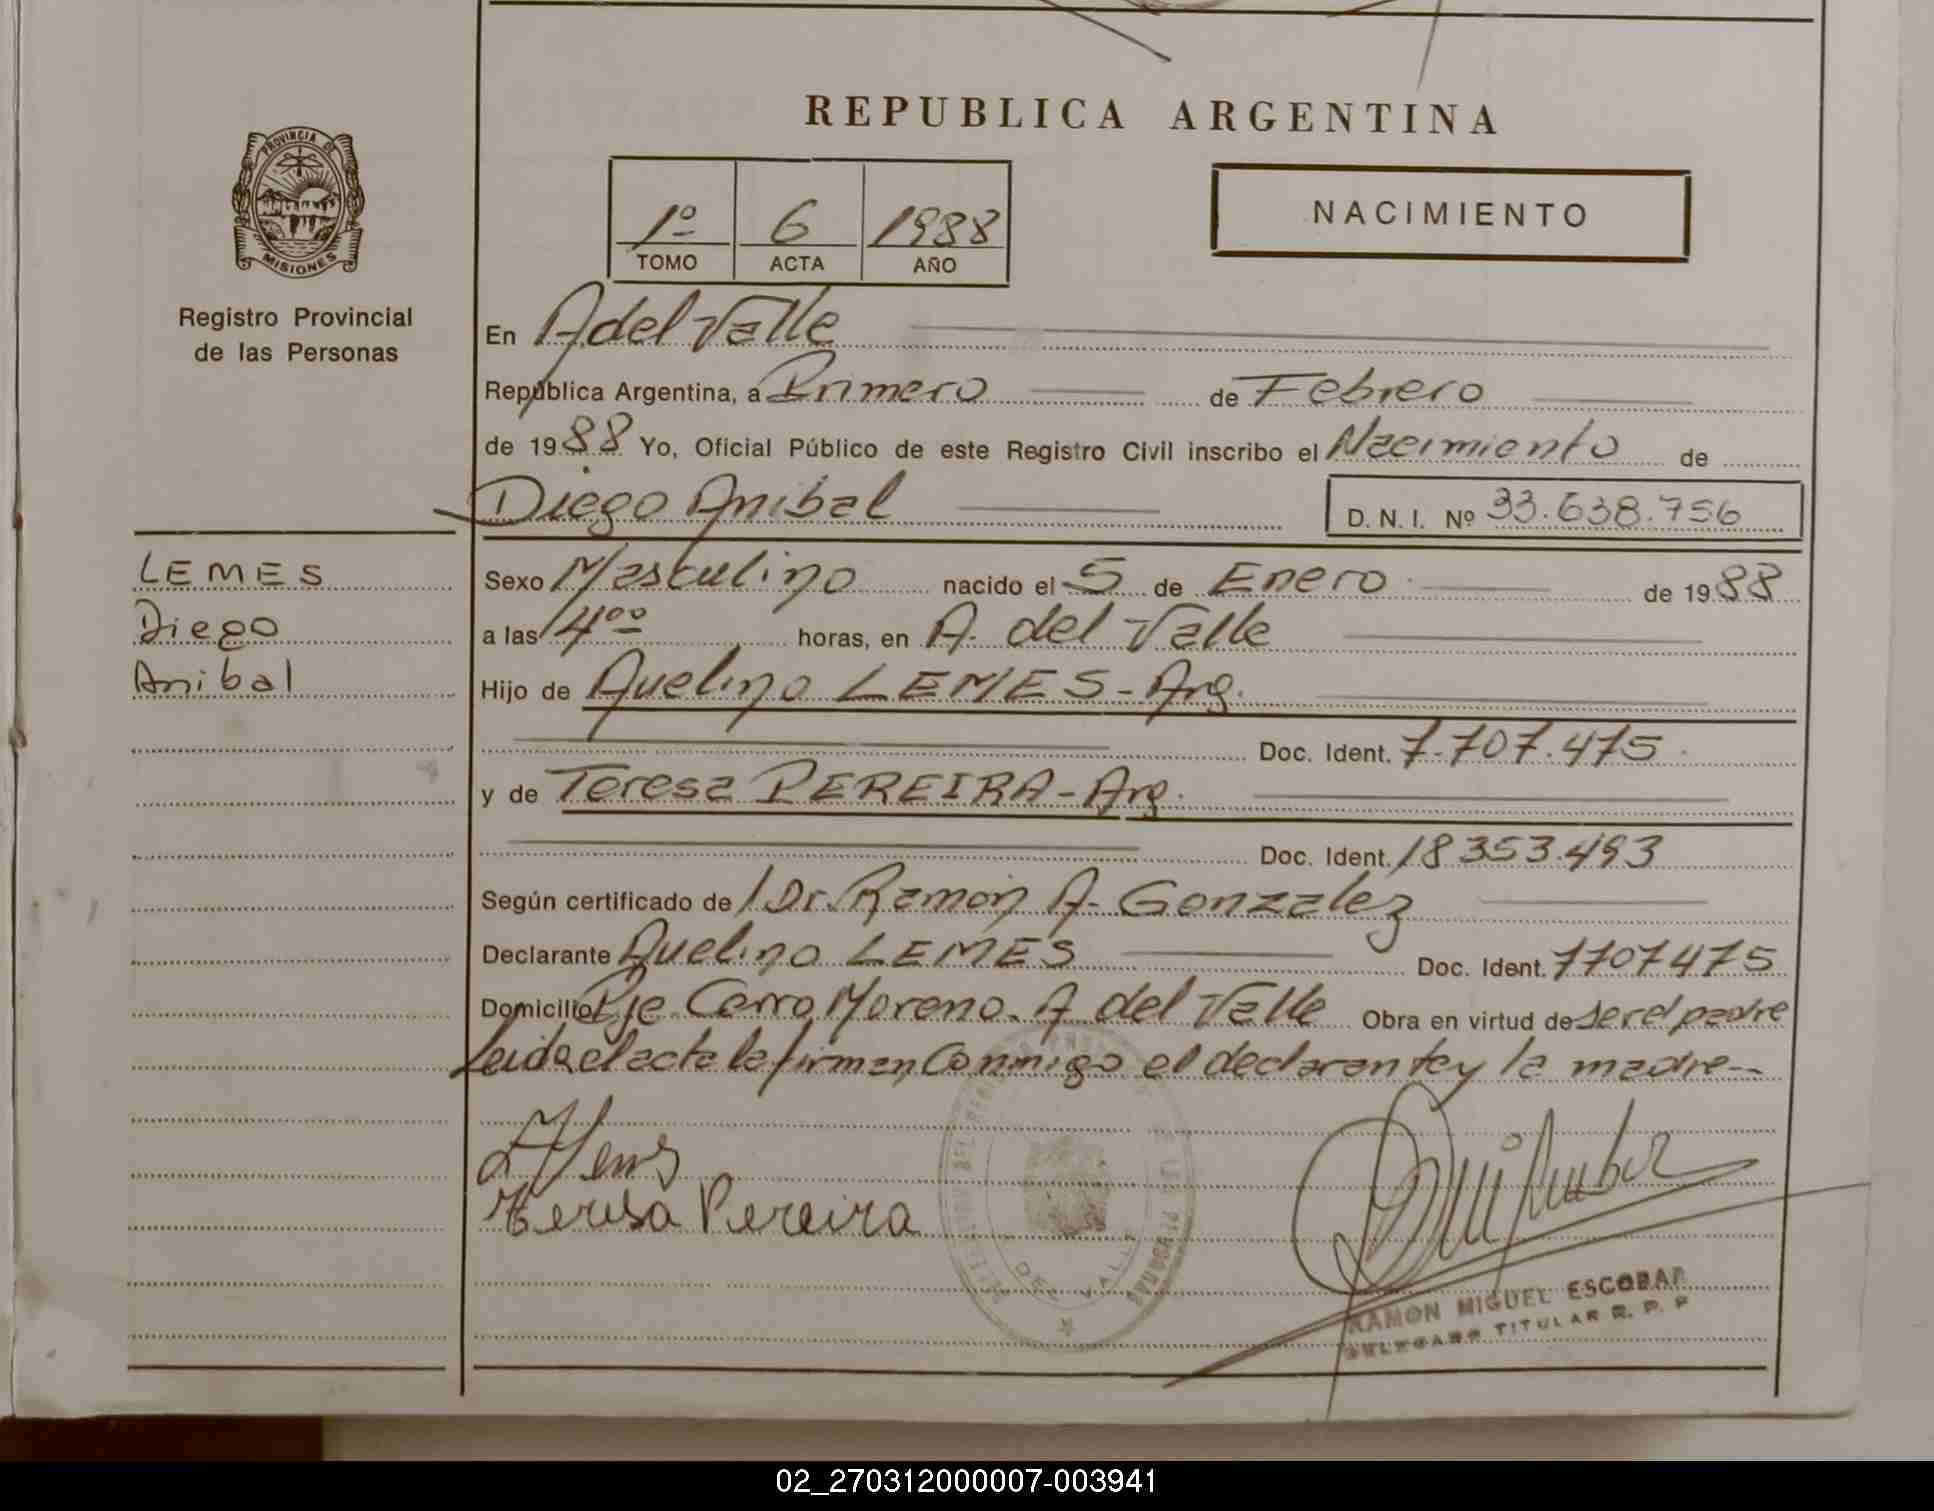 REPUBLICA ARGENTINA
PROVINCIA DE
MISIONES
Registro Provincial
de las Personas
1º 6 1988
TOMO ACTA AÑO
NACIMIENTO
En A del Valle
República Argentina, a Primero de Febrero
de 1988 Yo, Oficial Público de este Registro Civil inscribo el Nacimiento de
Diego Anibal D. N. I. Nº 33.638.756
LEMES
Diego
Anibal
Sexo Masculino nacido el 5 de Enero de 1988
a las 14⁰⁰ horas, en A. del Valle
Hijo de Avelino LEMES - Arg.
Doc. Ident. 7.707.475
y de Teresa PEREIRA - Arg.
Doc. Ident. 18353.493
Según certificado de / Dr. Ramón A. Gonzalez
Declarante Avelino LEMES Doc. Ident. 7707475
Domicilio Pje Cerro Moreno. A del Valle Obra en virtud de ser el padre
Leida el acta la firman Conmigo el declarante y la madre --
Teresa Pereira
DEL VALLE
RAMON MIGUEL ESCOBAR
DELEGADO TITULAR R. P. P
02_270312000007-003941